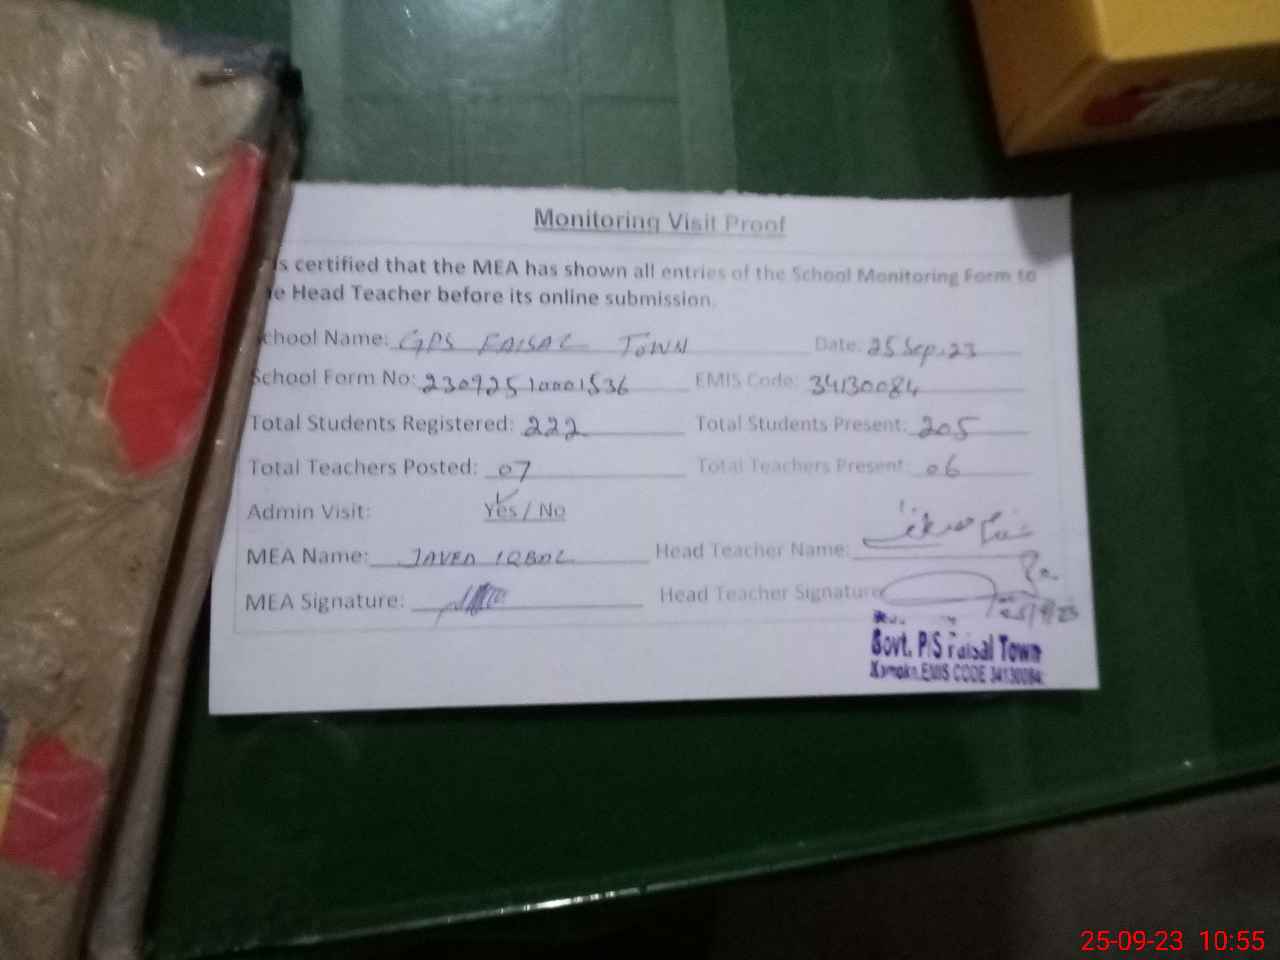 Monitoring Visit Proof
is certified that the MEA has shown all entries of the School Monitoring Form to
he Head Teacher before its online submission.
School Name: GPS FAISAL TOWN Date: 25 Sep, 23
School Form No: 23092510001536 EMIS Code: 34130084
Total Students Registered: 222 Total Students Present: 205
Total Teachers Posted: 07 Total Teachers Present: 06
Admin Visit: Yes / No
MEA Name: JAVED IQBAL Head Teacher Name:
MEA Signature: Head Teacher Signature
Govt. P/S Faisal Town
EMIS CODE 34130084
25-09-23 10:55